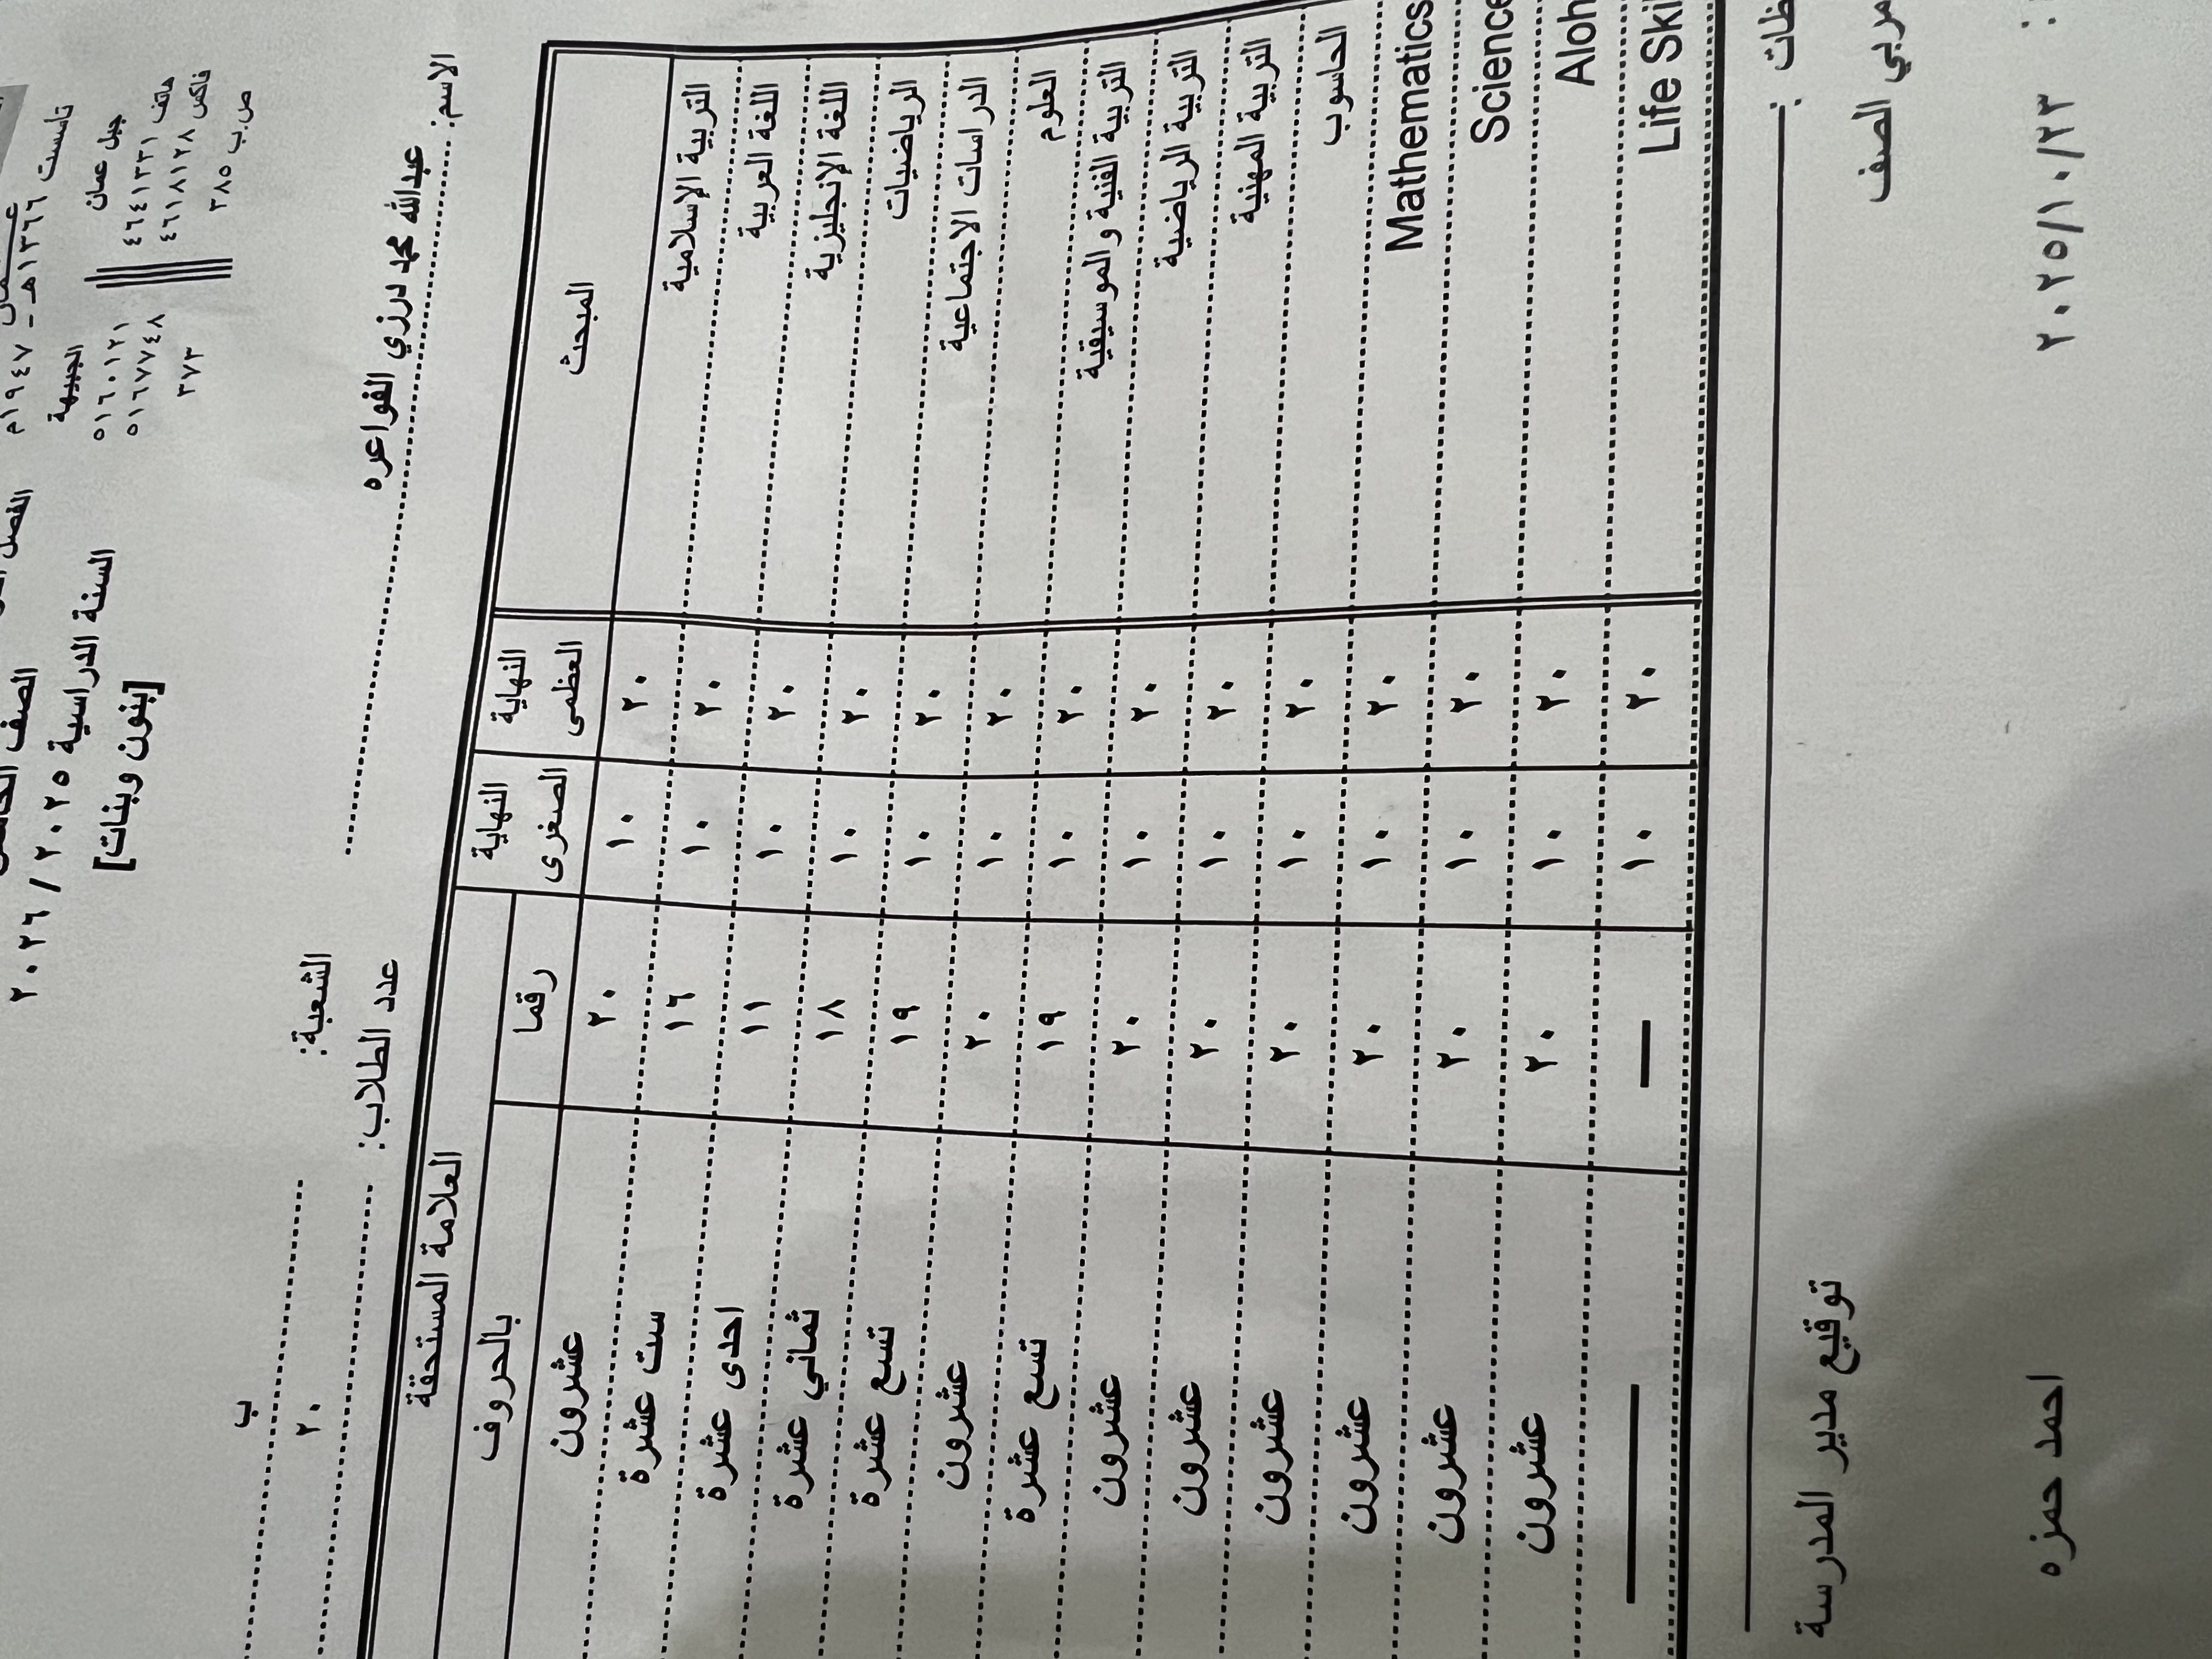 تأسست ١٣٦٦هـ - ١٩٤٧م
جبل عمان الجبيهة
هاتف ٤٦٤١٣٣١ ٥١٦٠١٢١
فاكس ٤٦١٨١٢٨ ٥١٦٧٧٤٨
ص.ب ٣٨٥ ٣٧٣
الصف
السنة الدراسية ٢٠٢٥ / ٢٠٢٦
[بنون وبنات]
الشعبة: ب
الاسم: عبدالله محمد درزي الفواعره
عدد الطلاب: ٢٠
المبحث النهاية العظمى النهاية الصغرى العلامة المستحقة
رقما بالحروف
التربية الإسلامية ٢٠ ١٠ ٢٠ عشرون
اللغة العربية ٢٠ ١٠ ١٦ ست عشرة
اللغة الإنجليزية ٢٠ ١٠ ١١ احدى عشرة
الرياضيات ٢٠ ١٠ ١٨ ثماني عشرة
الدراسات الاجتماعية ٢٠ ١٠ ١٩ تسع عشرة
العلوم ٢٠ ١٠ ٢٠ عشرون
التربية الفنية والموسيقية ٢٠ ١٠ ١٩ تسع عشرة
التربية الرياضية ٢٠ ١٠ ٢٠ عشرون
التربية المهنية ٢٠ ١٠ ٢٠ عشرون
الحاسوب ٢٠ ١٠ ٢٠ عشرون
Mathematics ٢٠ ١٠ ٢٠ عشرون
Science ٢٠ ١٠ ٢٠ عشرون
Aloh ٢٠ ١٠ ٢٠ عشرون
Life Skil ٢٠ ١٠ — —
ظات :
مربي الصف توقيع مدير المدرسة
٢٠٢٥/١٠/٢٣ احمد حمزه